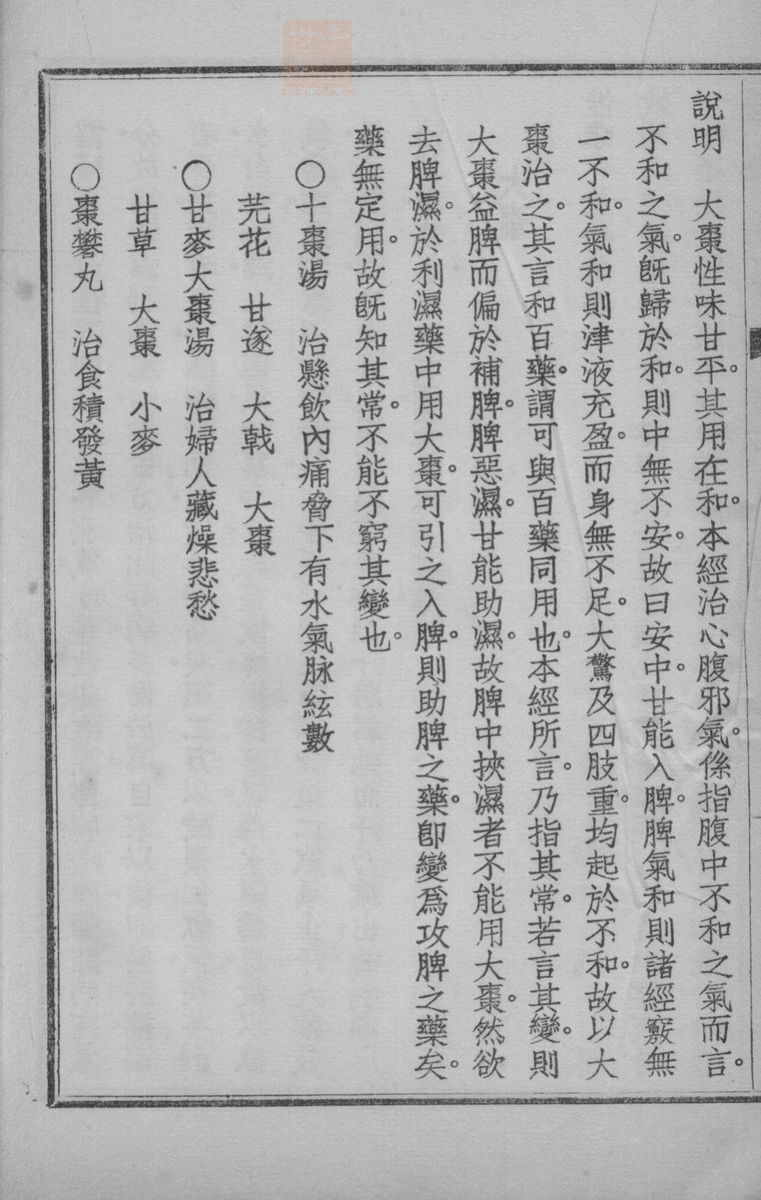 說明　大棗性味甘平。其用在和。本經治心腹邪氣。係指腹中不和之氣而言。
不和之氣。旣歸於和。則中無不安。故曰安中。甘能入脾。脾氣和則諸經竅無
一不和。氣和則津液充盈。而身無不足。大驚及四肢重。均起於不和。故以大
棗治之。其言和百藥。謂可與百藥同用也。本經所言。乃指其常。若言其變。則
大棗益脾而偏於補脾。脾惡濕。甘能助濕。故脾中挾濕者不能用大棗。然欲
去脾濕。於利濕藥中用大棗。可引之入脾。則助脾之藥。卽變爲攻脾之藥矣。
藥無定用。故旣知其常。不能不窮其變也。
○十棗湯　治懸飮內痛脅下有水氣脉絃數
芫花　甘遂　大戟　大棗
○甘麥大棗湯　治婦人藏燥悲愁
甘草　大棗　小麥
○棗礬丸　治食積發黃